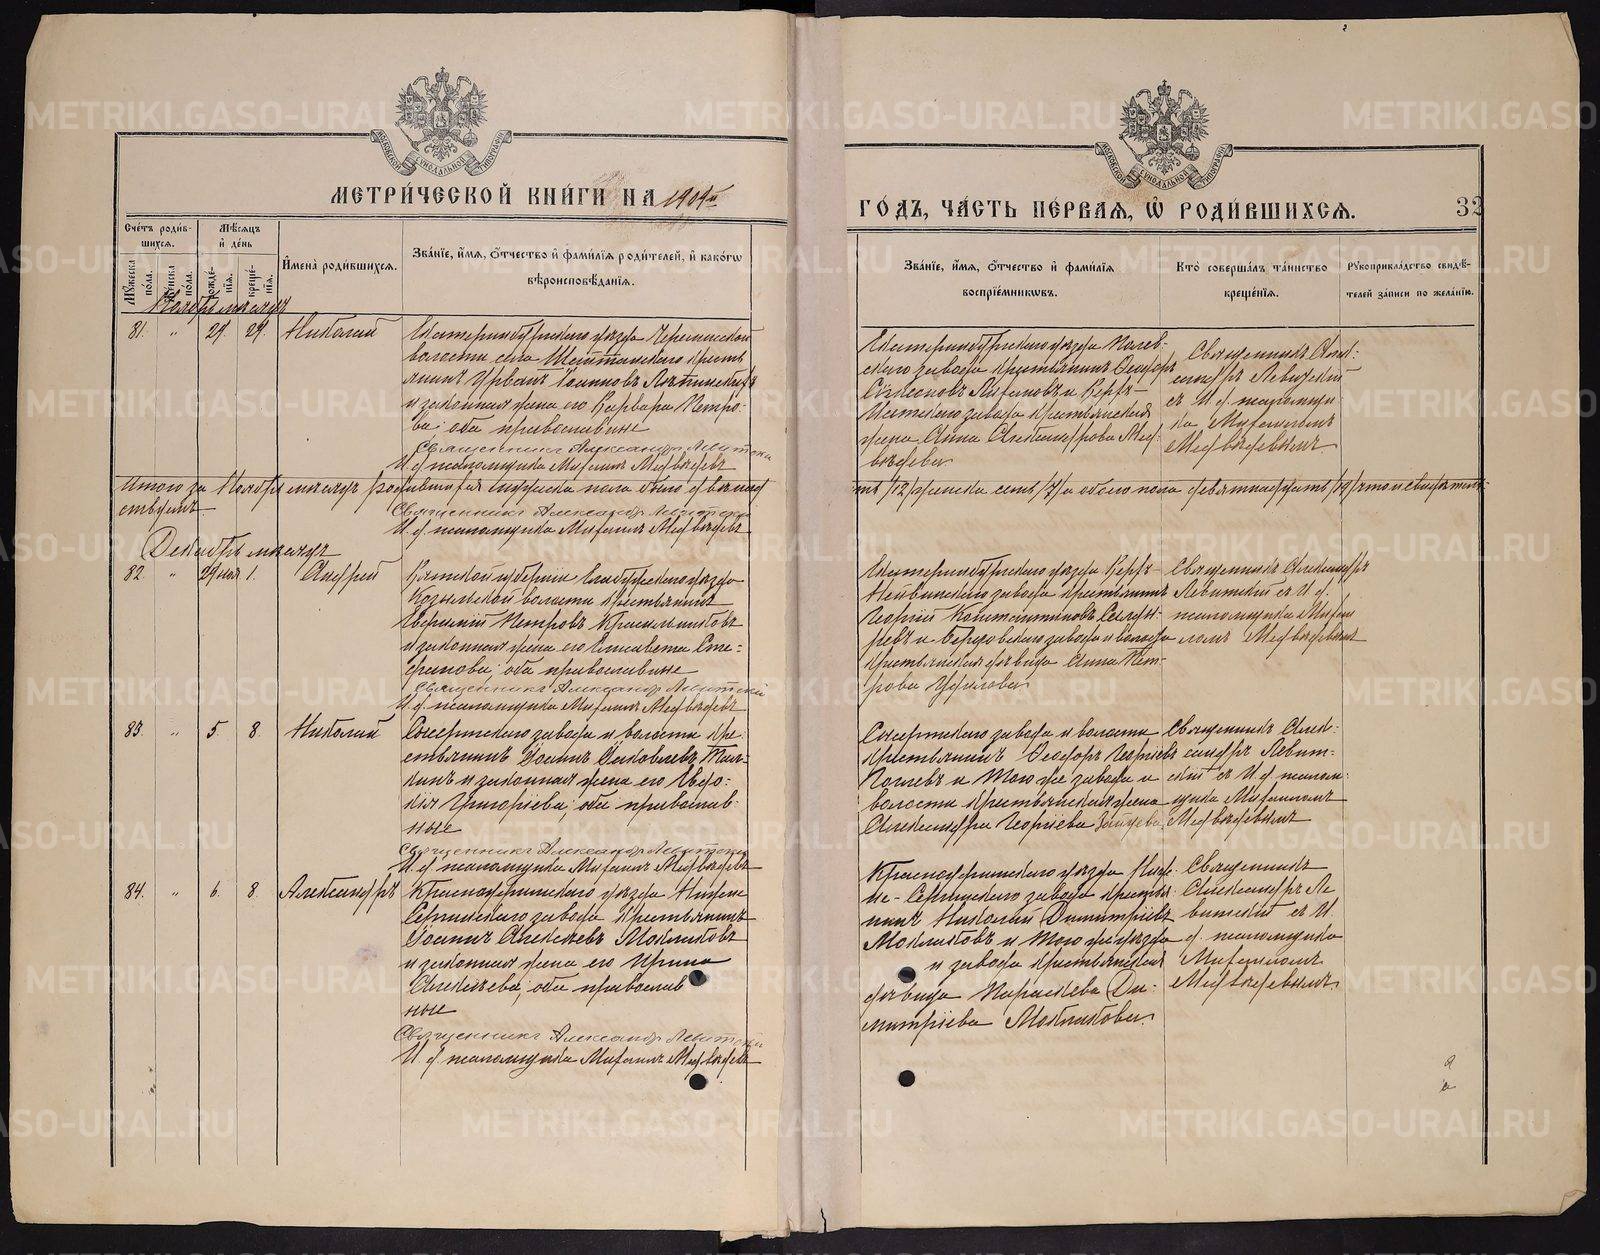 МЕТРИ́ЧЕСКОЙ КНИ́ГИ НА 1904й
ГО́ДЪ, ЧА́СТЬ ПЕ́РВАЯ, Ѡ҆ РОДИ́ВШИХСЯ.
32
Сче́тъ роди́в-
шихся.
Мѣ́сяцъ
и҆ де́нь
Му́жеска по́ла.
Же́нска по́ла.
рожде́-
нїя.
креще́-
нїя.
И҆мена̀ роди́вшихся.
Зва́нїе, и҆́мя, ѻ҆́тчество и҆ фами́лїя роди́телей, и҆ како́гѡ
вѣроисповѣ́данїя.
Зва́нїе, и҆́мя, ѻ҆́тчество и҆ фами́лїя
воспрїе́мникѡвъ.
Кто̀ соверша́лъ та́инство
креще́нїя.
Рꙋкоприкла́дство свидѣ́-
телей за́писи по жела́нїю.
Ноябрь месяцъ
81. " 29. 29. Николай
Екатеринбургскаго уѣзда
волости села Шайтанскаго крестья
янинъ Іоанновъ
и законная жена его Варвара Петро-
ва; оба православные
Священникъ Александръ Левитскій
И. д. псаломщика Михаилъ Медвѣдевъ
Екатеринбургскаго уѣзда Полев-
скаго завода крестьянинъ Ѳеодоръ
и Верх-
Исетскаго завода крестьянская
жена Анна Александрова Мед-
вѣдева
Священникъ Алек-
сандръ Левитскій
съ И. д. псаломщи
ка Михаиломъ
Медвѣдевымъ
Итого за Ноябрь месяцъ родившихся мужеска пола было двѣнад
ть /12/ женска семь /7/ а обоего пола девятнадцать /19/ что и свидѣтель-
ствуемъ
Священникъ Александръ Левитскій
И. д. псаломщика Михаилъ Медвѣдевъ
Декабрь месяцъ
82. " 29 ноя 1. Андрей
Вятской губерніи Елабужскаго уѣзда
волости крестьянинъ
Петровъ Красильниковъ
и законная жена его Елисавета Сте-
фанова; оба православные
Священникъ Александръ Левитскій
И. д. псаломщика Михаилъ Медвѣдевъ
Екатеринбургскаго уѣзда Верх-
Нейвинскаго завода крестьянинъ
Георгій Константиновъ
и завода и волости
крестьянская дѣвица Анна Пет-
рова
Священникъ Александръ
Левитскій съ И. д.
псаломщика Михаи
ломъ Медвѣдевымъ
83. " 5. 8. Николай
Сысертскаго завода и волости кре-
стьянинъ Іоаннъ Іаковлевъ
и законная жена его Евдо-
кія Григоріева; оба православ-
ные
Священникъ Александръ Левитскій
И. д. псаломщика Михаилъ Медвѣдевъ
Сысертскаго завода и волости
крестьянинъ Ѳеодоръ Георгіевъ
и того же завода и
волости крестьянская жена
Александра Георгіева Зайцева
Священникъ Алек-
сандръ Левит-
скій съ И. д. псалом-
щика Михаиломъ
Медвѣдевымъ
84. " 6. 8. Александръ
Красноуфимскаго уѣзда Нижне
Сергинскаго завода крестьянинъ
Іоаннъ Алексѣевъ
и законная жена его Ирина
Алексѣева; оба православ
ные
Священникъ Александръ Левитскій
И. д. псаломщика Михаилъ Медвѣдевъ
Красноуфимскаго уѣзда Ниж-
не-Сергинскаго завода крестья
нинъ Николай Димитріевъ
и того же уѣзда
и завода крестьянская
дѣвица Параскева Ди-
митріева
Священникъ
Александръ Ле
витскій съ И.
д. псаломщика
Михаиломъ
Медвѣдевымъ
METRIKI.GASO-URAL.RU